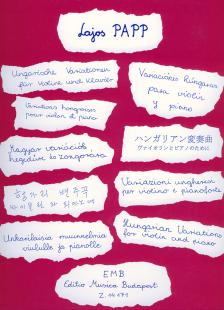 Lajos PAPP
Ungarische Variationen
für Violine und Klavier
Variaciones húngaras
para violín
y piano
Variations hongroises
pour violon et piano
ハンガリアン変奏曲
ヴァイオリンとピアノのために
Magyar variációk
hegedűre és zongorára
Variazioni ungheresi
per violino e pianoforte
헝가리 변주곡
바이올린과 피아노
Unkarilaisia muunnelmia
viululle ja pianolle
Hungarian Variations
for violin and piano
EMB
Editio Musica Budapest
Z. 14 171